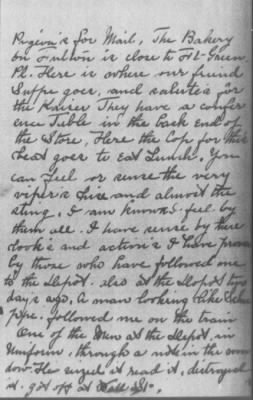 Pigeon's for Mail, The Bakery
on Fulton is close to Ft-Green
Pl. Here is where our friend
goes, and salute's for
the Kaiser They have a confer
ence Table in the back end of
the Store, Here the Cop for this
beat goes to Eat Lunch. You
can feel or sense the very
viper's hiss and almost the
sting, I am known & feel by
them all. I have sense by their
look's and action's I have
by those who have followed me
to the Depot. also at the Depots two
day's ago, A man looking like
followed me on the train
One of the Men at the Depot, in
Uniform, through a note in the win
dow. He seized it read it, distroyed
it. got off at Wall St.